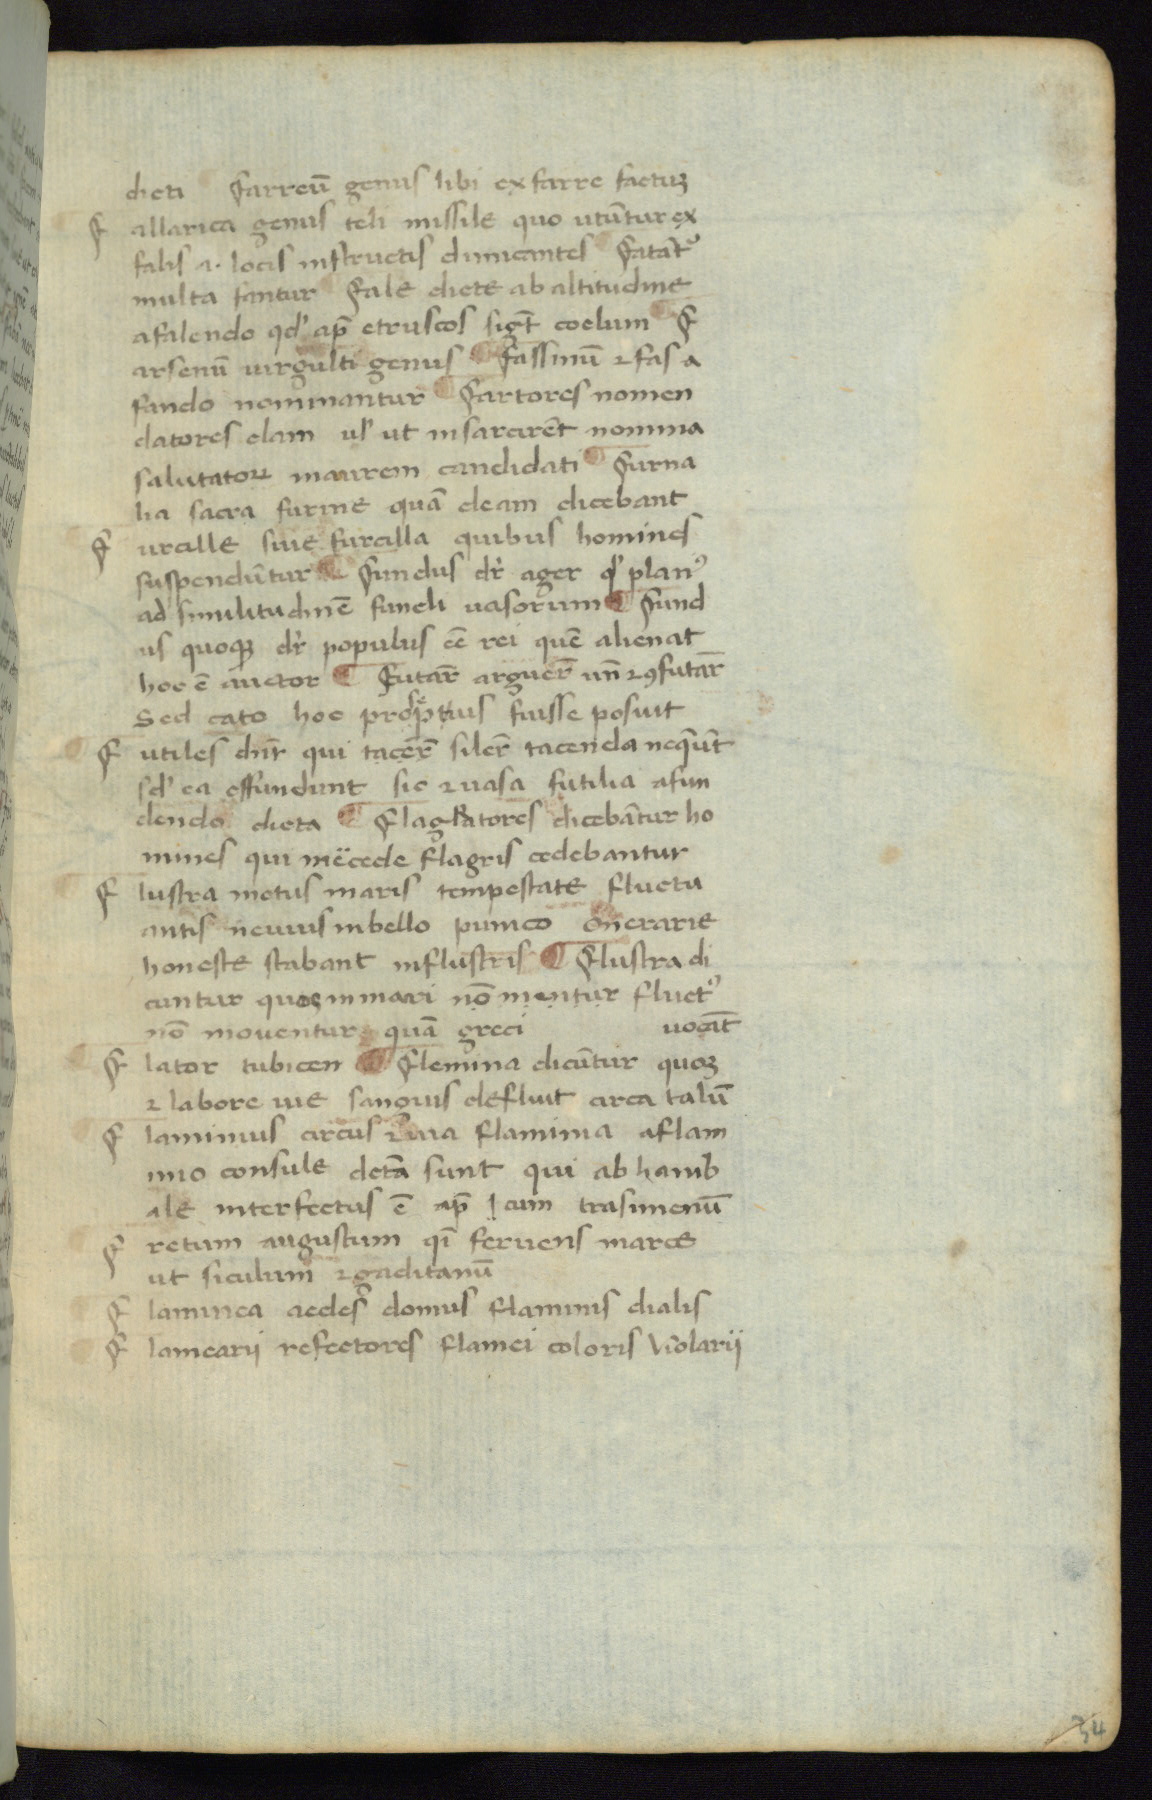 dicti Farreū genus libi ex farre factuꝫ
F allarica genus teli missile quo utūtur ex
falis a· locis instructis dimicantes Fatāt᷒
multa fantur Fale dicte ab altitudine
a falendo qd' ap̄ etruscos sigt̄ coelum F
arsenū uirgulti genus ¶ Fassinū ⁊ fas a
fando nominantur ¶ Fartores nomen
datores clam ul' ut insarcirēt nomina
salutatoꝝ in aurem candidati ¶ Furna
lia sacra furine quā deam dicebant
F urcille siue furcilla quibus homines
suspendūtur ¶ Fundus dr̄ ager q' plan᷒
ad similitudinē fundi uasorum ¶ Fund
us quoqꝫ dr̄ populus eē rei quē alienat
hoc ē auctor ¶ Futar̄ arguer̄ un̄ ⁊ ꝯfutar̄
Sed cato hoc prop̄tius fuisse posuit
F utiles dnr̄ qui tacer̄ siler̄ tacenda neqūt
sd' ea effundunt sic ⁊ uasa futilia a fun
dendo dicta ¶ Flagratores dicebātur ho
mines qui mēcede flagris cedebantur
F lustra motus maris tempestate fluctu
antis neuius in bello punico Onerarie
honeste stabant in flustris ¶ Flustra di
cuntur quoꝫ in mari nō mentur fluct᷒
nō mouentur quā greci uocāt
F lator tubicen ¶ Flemina dicūtur quoꝫ
⁊ labore uie sanguis defluit circa talū
F laminius circus ⁊ uia flaminia a flam
inio consule dcta sunt qui ab hanib
ale interfectus ē ap̄ lcum trasimenū
F retum augustum qi feruens marce
ut siculum ⁊ gaditanū
F laminea aedes domus flaminis dialis
F lamearij refectores flamei coloris violarij
34